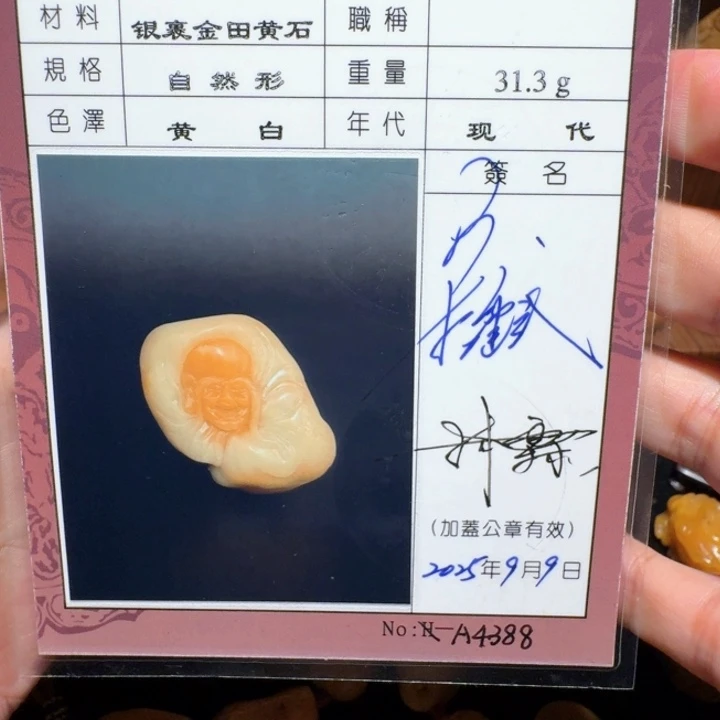 材料 银裹金田黄石 職稱
規格 自然形 重量 31.3 g
色澤 黄 白 年代 现 代
簽名
(加蓋公章有效)
2025年9月9日
No:H A4388